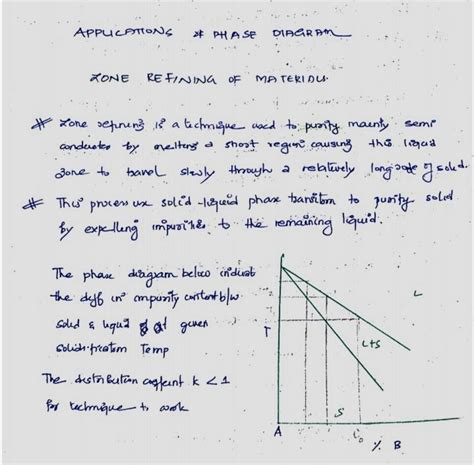 APPLICATIONS of PHASE DIAGRAM
ZONE REFINING OF MATERIALS.
# Zone refining is a technique used to purify mainly semi
conductor by melting a short region causing this liquid
zone to travel slowly through a relatively long rode of solid.
# This process use solid-liquid phase transition to purify solid
by expelling impurities to the remaining liquid.
The phase diagram below indicat
the diff in impurity content b/w
solid & liquid at given
solidification Temp
The distribution coefficient k < 1
for technique to work
L
T
L+S
S
A
C₀
% B